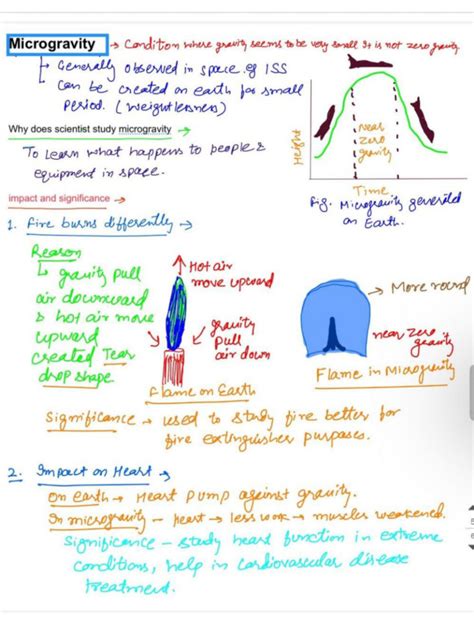 Microgravity → Condition where gravity seems to be very small It is not zero gravity
Generally observed in space eg ISS
Can be created on earth for small
period. (weightlessness)
Why does scientist study microgravity →
To learn what happens to people &
equipment in space.
Height
Near
zero
gravity
Time
Fig. Microgravity generated
on Earth.
impact and significance →
1. Fire burns differently →
Reason
gravity pull
air downward
& hot air move
upward
created Tear
drop shape.
Hot air
move upward
gravity
pull
air down
Flame on Earth
More round
near zero
gravity
Flame in Microgravity
Significance → used to study fire better for
fire extinguisher purposes.
2. Impact on Heart →
On earth → Heart pump against gravity.
In microgravity - heart → less work → muscles weakened.
Significance - study heart function in extreme
conditions, help in cardiovascular disease
treatment.